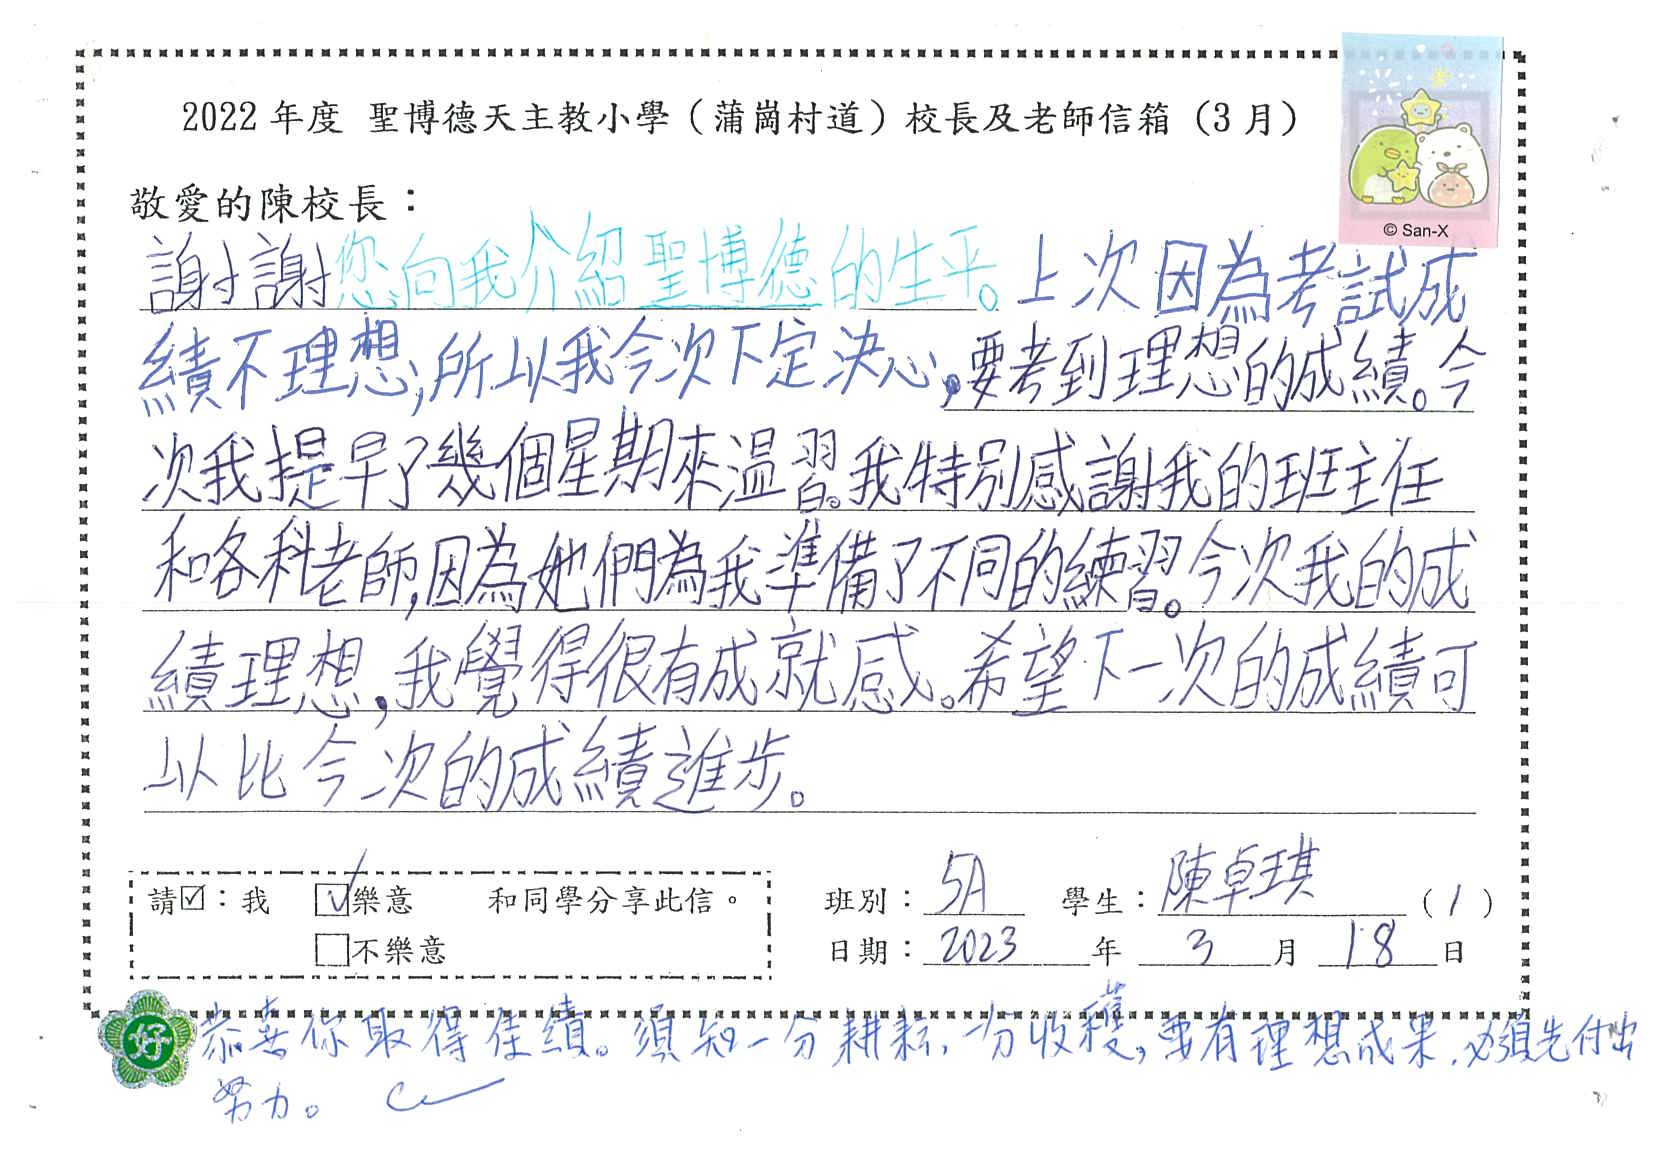 2022 年度 聖博德天主教小學（蒲崗村道）校長及老師信箱（3 月）
© San-X
敬愛的陳校長：
謝謝您向我介紹聖博德的生平。上次因為考試成
績不理想，所以我今次下定決心，要考到理想的成績。今
次我提早了幾個星期來溫習。我特別感謝我的班主任
和各科老師，因為她們為我準備了不同的練習。今次我的成
績理想，我覺得很有成就感。希望下一次的成績可
以比今次的成績進步。
請☑：我 ☑樂意 和同學分享此信。
□不樂意
班別：5A 學生：陳卓琪（1）
日期：2023 年 3 月 18 日
好
恭喜你取得佳績。須知一分耕耘，一分收穫，要有理想成果，必須先付出
努力。